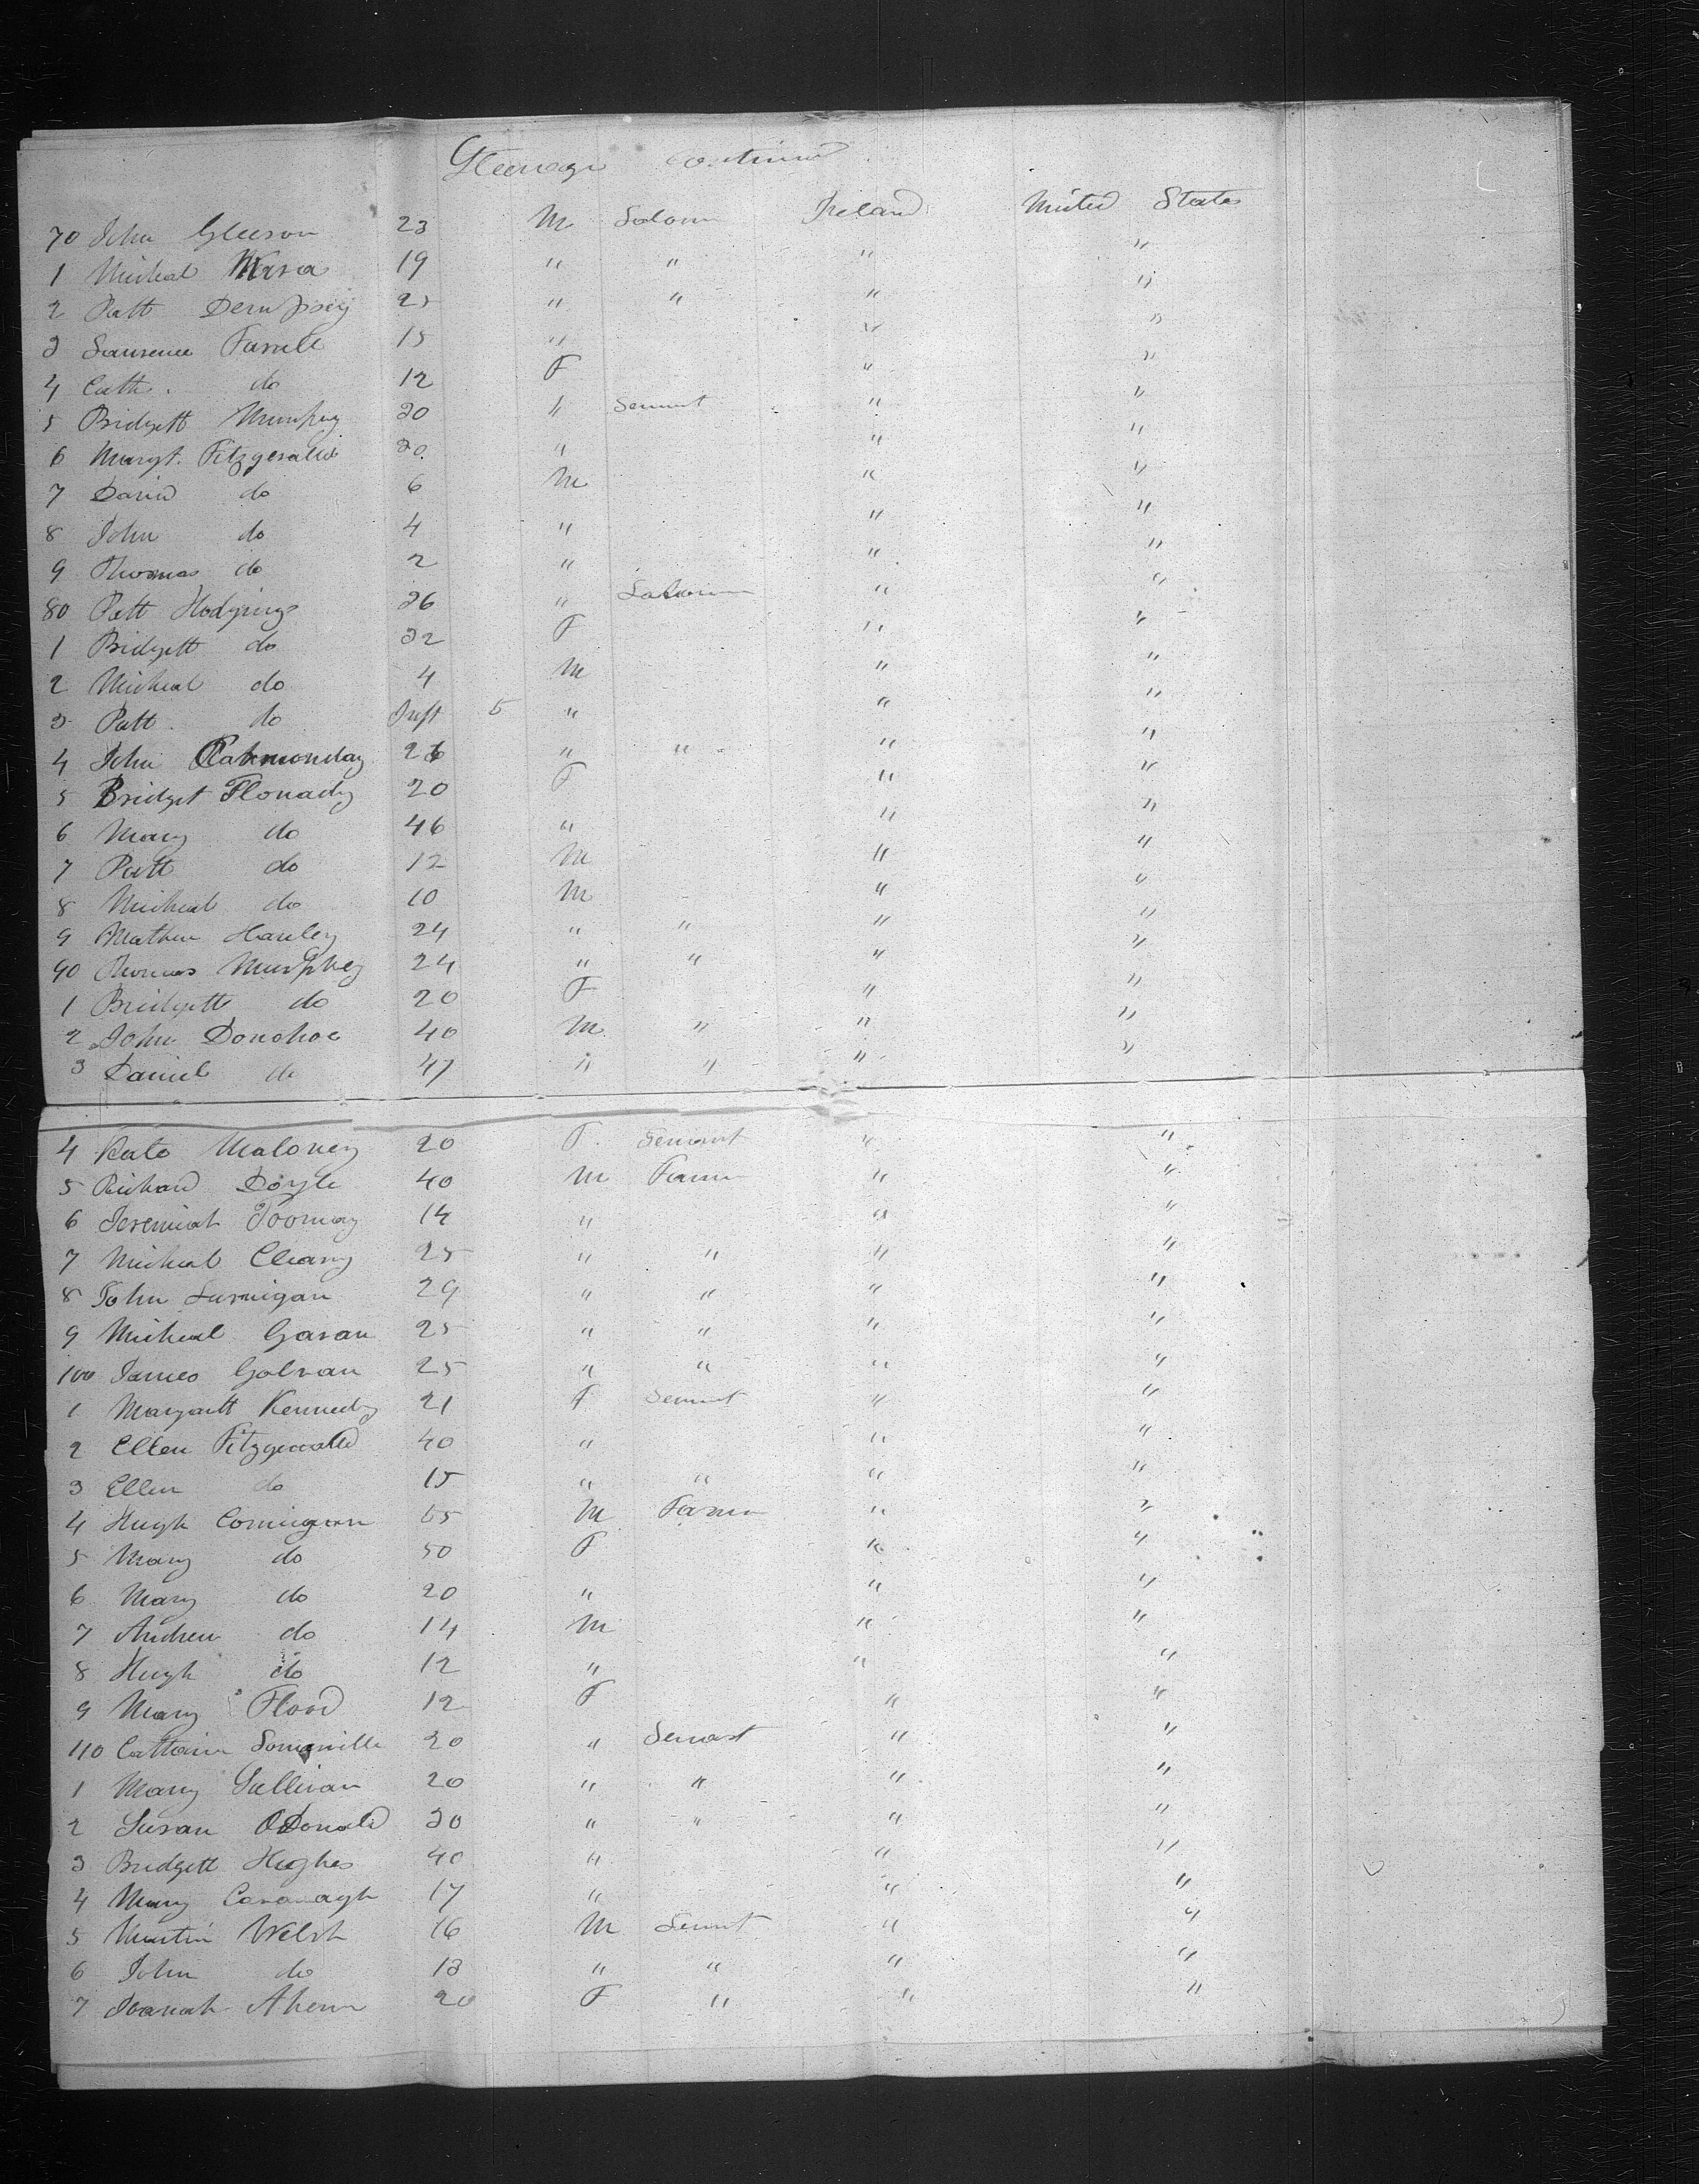 Steerage continued
70 John Gleeson 23 M Labourer Ireland United States
1 Micheal Mara 19 " " " "
2 Patt Dempsey 25 " " " "
3 Laurence Farrell 15 " " "
4 Cath. do 12 F " "
5 Bridgett Murphy 20 " Servant " "
6 Margt. Fitzgerald 30 " " "
7 David do 6 M " "
8 John do 4 " " "
9 Thomas do 2 " " "
80 Patt Hodgings 36 " Labourer " "
1 Bridgett do 32 F " "
2 Micheal do 4 M " "
3 Patt do Inft 5 " " "
4 John 26 " " " "
5 Bridget Flonady 20 F " "
6 Mary do 46 " " "
7 Patt do 12 M " "
8 Micheal do 10 M " "
9 Mathew Hanley 24 " " " "
90 Thomas Murphey 24 " " " "
1 Bridgett do 20 F " "
2 John Donohoe 40 M " " "
3 Daniel do 47 " " " "
4 Kate Maloney 20 F. Servant " "
5 Richard Doyle 40 M Farmer " "
6 Jeremiah Toomay 14 " " "
7 Micheal Cleary 25 " " " "
8 John Lurnigan 29 " " " "
9 Micheal Gavan 25 " " " "
100 James Galvan 25 " " " "
1 Margaett Kennedy 21 F Servant " "
2 Ellen Fitzgerald 40 " " "
3 Ellen do 15 " " " "
4 Hugh Cornigan 55 M Farmer " "
5 Mary do 50 F " "
6 Mary do 20 " " "
7 Andrew do 14 M " "
8 Hugh do 12 " " "
9 Mary Flood 12 F " "
110 Somerville 20 " Servant " "
1 Mary Sullivan 20 " " " "
2 Susan ODonald 30 " " " "
3 Bridgett Hughes 40 " " "
4 Mary Cavanagh 17 " " "
5 Martin Welsh 16 M Servnt " "
6 John do 13 " " " "
7 Joanah Ahern 20 F " " "